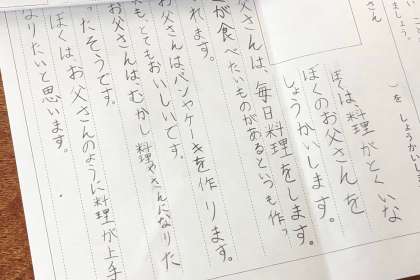 ましょう。
さん
）を しょうかいし
ぼくは、料理がとくいな
ぼくのお父さんを
しょうかいします。
父さんは、毎日料理をします。
が食べたいものがあるといつも作っ
れます。
お父さんはパンやケーキを作ります。
も、とてもおいしいです。
お父さんはむかし料理やさんになりた
たそうです。
ぼくはお父さんのように料理が上手
なりたいと思います。